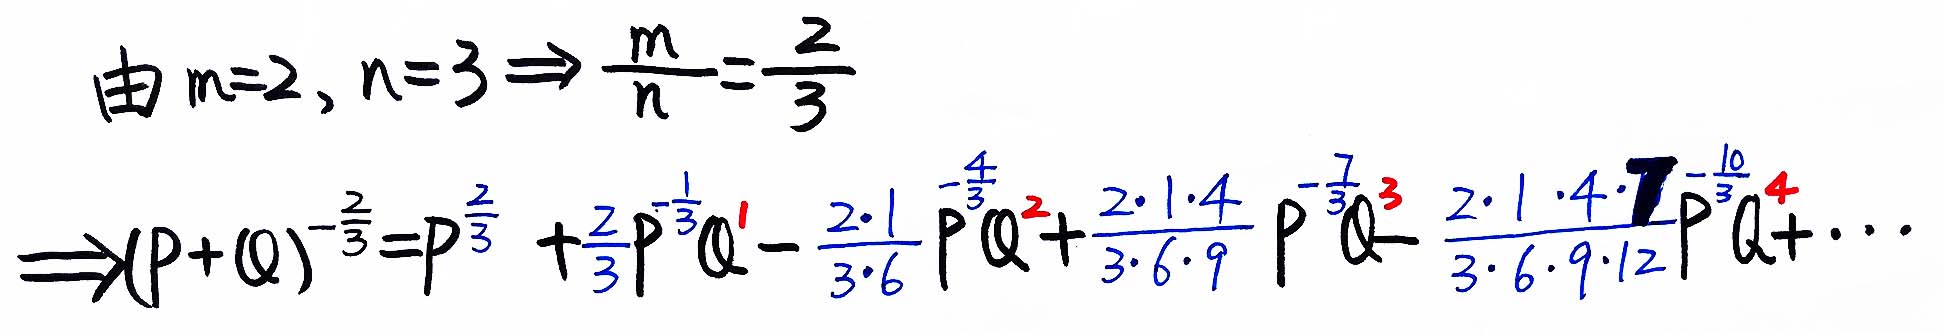 由 m=2, n=3 ⟹ m/n = 2/3
⟹ (P+Q)^{-2/3} = P^{2/3} + 2/3 P^{-1/3} Q^1 - (2·1)/(3·6) P^{-4/3} Q^2 + (2·1·4)/(3·6·9) P^{-7/3} Q^3 - (2·1·4·7)/(3·6·9·12) P^{-10/3} Q^4 + ···